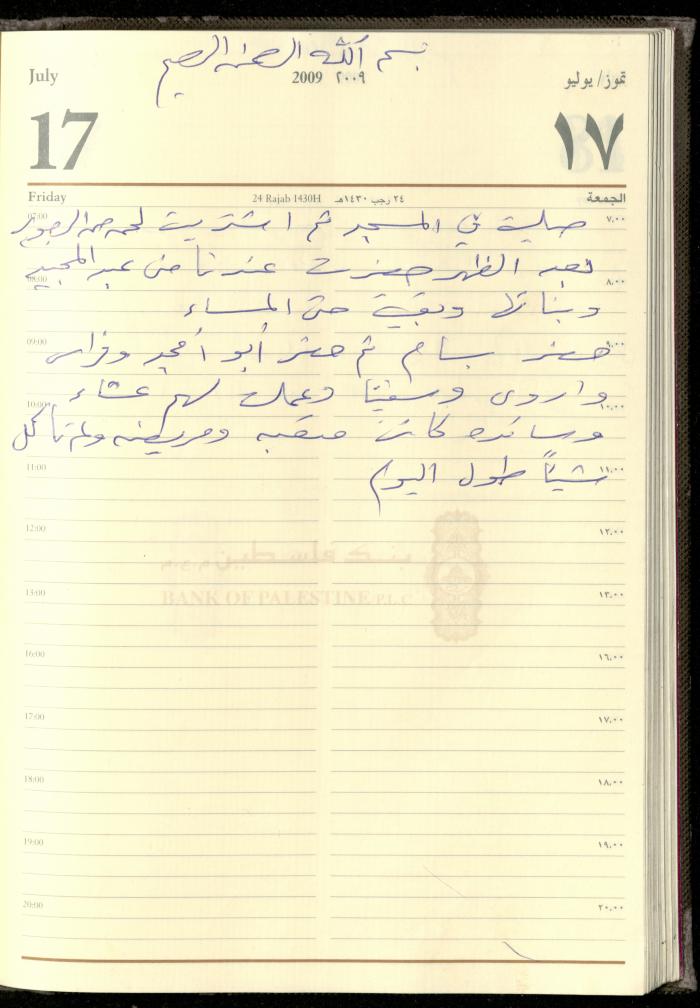 بسم الله الرحمن الرحيم
July 2009 ٢٠٠٩ تموز/ يوليو
17 ١٧
Friday 24 Rajab 1430H ٢٤ رجب ١٤٣٠هـ الجمعة
07:00 صليت في المسجد ثم اشتريت لحمه من ٧،٠٠
بعد الظهر حضرت عندنا منى عبد المجيد
08:00 ٨،٠٠
وبناتها وبقيت حتى المساء
09:00 ٩،٠٠
حضر بسام ثم حضر أبو أمجد وفراس
واروى وسفيتا وعملت لهم عشاء
10:00 ١٠،٠٠
وسائده كانت متعبه ومريضه ولم تأكل
11:00 ١١،٠٠
شيئاً طول اليوم
12:00 ١٢،٠٠
بنك فلسطين م.ع.م
13:00 ١٣،٠٠
BANK OF PALESTINE P.L.C
16:00 ١٦،٠٠
17:00 ١٧،٠٠
18:00 ١٨،٠٠
19:00 ١٩،٠٠
20:00 ٢٠،٠٠